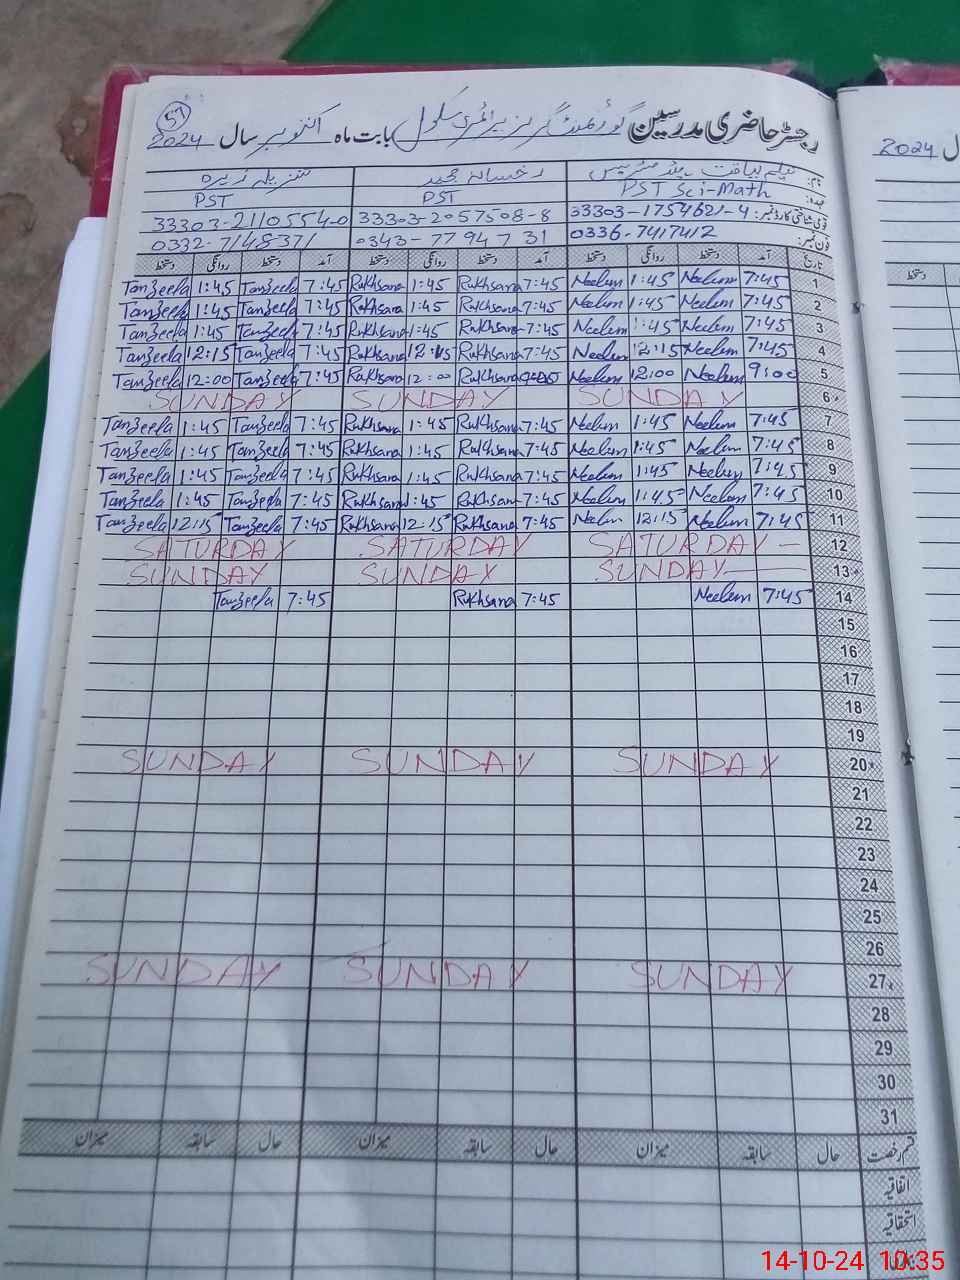 57
رجسٹر حاضری مدرسین گورنمنٹ گرلز پرائمری سکول بابت ماہ اکتوبر سال 2024
2024
نام: نیلم لیاقت ہیڈ مسٹریس رخسانہ مجید تنزیلہ زہرہ
عہدہ: PST Sci-Math PST PST
قومی شناختی کارڈ نمبر: 33303-1754621-4 33303-2057508-8 33303-2110554-0
فون نمبر: 0336-7417412 0343-7794731 0332-7148371
تاریخ آمد دستخط روانگی دستخط آمد دستخط روانگی دستخط آمد دستخط روانگی دستخط
دستخط
Tanzeela 1:45 Tanzeela 7:45 Rukhsana 1:45 Rukhsana 7:45 Neelum 1:45 Neelum 7:45 1
Tanzeela 1:45 Tanzeela 7:45 Rukhsana 1:45 Rukhsana 7:45 Neelum 1:45 Neelum 7:45 2
Tanzeela 1:45 Tanzeela 7:45 Rukhsana 1:45 Rukhsana 7:45 Neelum 1:45 Neelum 7:45 3
Tanzeela 12:15 Tanzeela 7:45 Rukhsana 12:15 Rukhsana 7:45 Neelum 12:15 Neelum 7:45 4
Tanzeela 12:00 Tanzeela 7:45 Rukhsana 12:00 Rukhsana 7:45 Neelum 12:00 Neelum 9:00 5
SUNDAY SUNDAY SUNDAY 6
Tanzeela 1:45 Tanzeela 7:45 Rukhsana 1:45 Rukhsana 7:45 Neelum 1:45 Neelum 7:45 7
Tanzeela 1:45 Tanzeela 7:45 Rukhsana 1:45 Rukhsana 7:45 Neelum 1:45 Neelum 7:45 8
Tanzeela 1:45 Tanzeela 7:45 Rukhsana 1:45 Rukhsana 7:45 Neelum 1:45 Neelum 7:45 9
Tanzeela 1:45 Tanzeela 7:45 Rukhsana 1:45 Rukhsana 7:45 Neelum 1:45 Neelum 7:45 10
Tanzeela 12:15 Tanzeela 7:45 Rukhsana 12:15 Rukhsana 7:45 Neelum 12:15 Neelum 7:45 11
SATURDAY SATURDAY SATURDAY 12
SUNDAY SUNDAY SUNDAY 13
Tanzeela 7:45 Rukhsana 7:45 Neelum 7:45 14
15
16
17
18
19
SUNDAY SUNDAY SUNDAY 20
21
22
23
24
25
26
SUNDAY SUNDAY SUNDAY 27
28
29
30
31
قسم رخصت حال سابقہ میزان حال سابقہ میزان حال سابقہ میزان
اتفاقیہ
استحقاقیہ
14-10-24 10:35